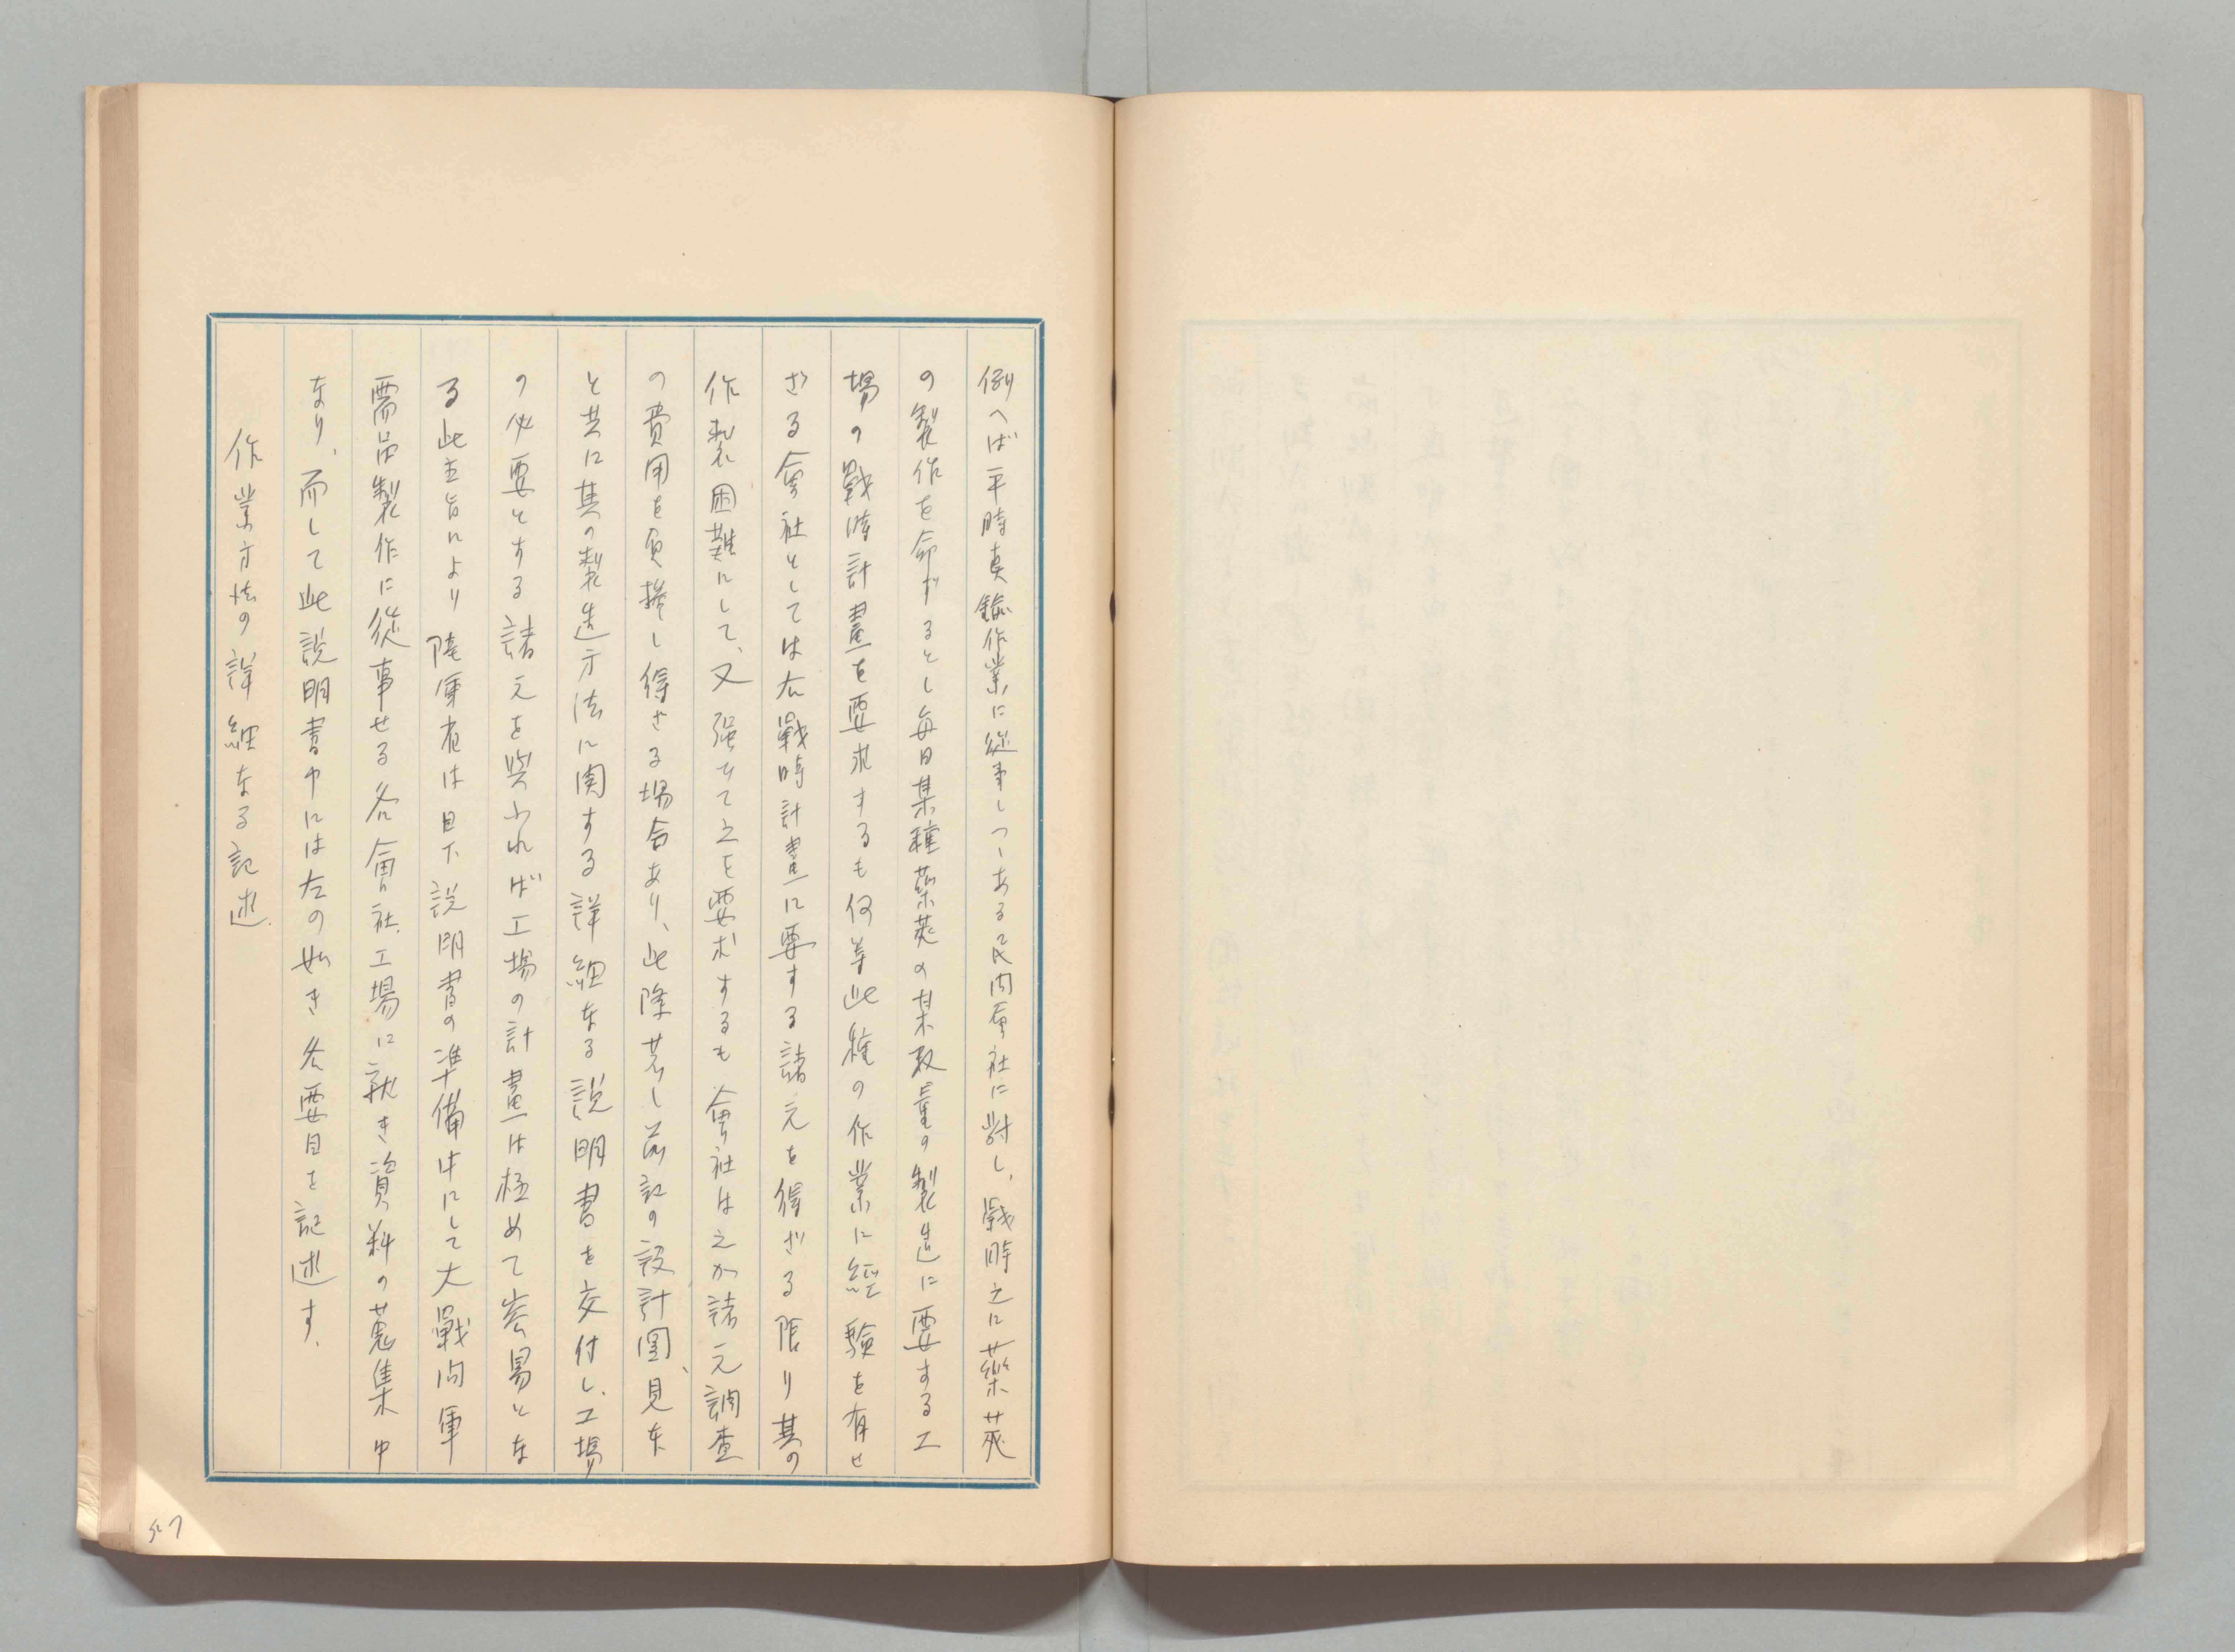 例へば平時真鍮作業に從事しつゝある民間會社に對し、戰時之に藥莢
の製作を命ずるとし毎日某種藥莢の某数量の製造に要する工
場の戰時計畫を要求するも何等此種の作業に經驗を有せ
ざる會社としては右戰時計畫に要する諸元を得ざる限り其の
作製困難にして、又强て之を要求するも會社は之か諸元調査
の費用を負擔し得ざる場合あり、此際若し前記の設計圖、見本
と共に其の製造方法に関する詳細なる説明書を交付し、工場
の必要とする諸元を與ふれば工場の計畫は極めて容易とな
る此主旨により陸軍省は目下説明書の準備中にして大戰間軍
需品製作に從事せる各會社工場に就き資料の蒐集中
なり、而して此説明書中には左の如き各要目を記述す、
作業方法の詳細なる記述
57